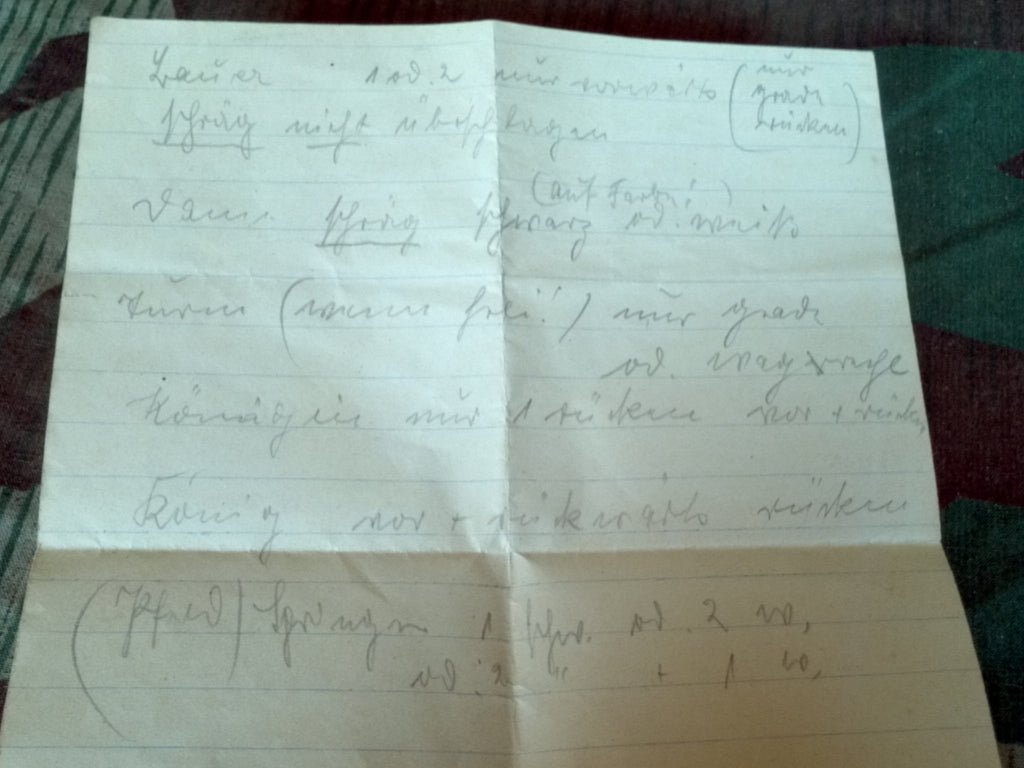 Bauer 1 od. 2 nur vorwärts (nur grade rücken)
schräg nicht überschlagen
(auf Farbe!)
Dame schräg schwarz od. weiß
Turm (wenn frei!) nur grade
od. wagrecht
Königin nur 1 rücken vor + rückw.
König vor + rückwärts rücken
(Pferd) Springen 1 schw. od. 2 w,
od. 2 " + 1 w,